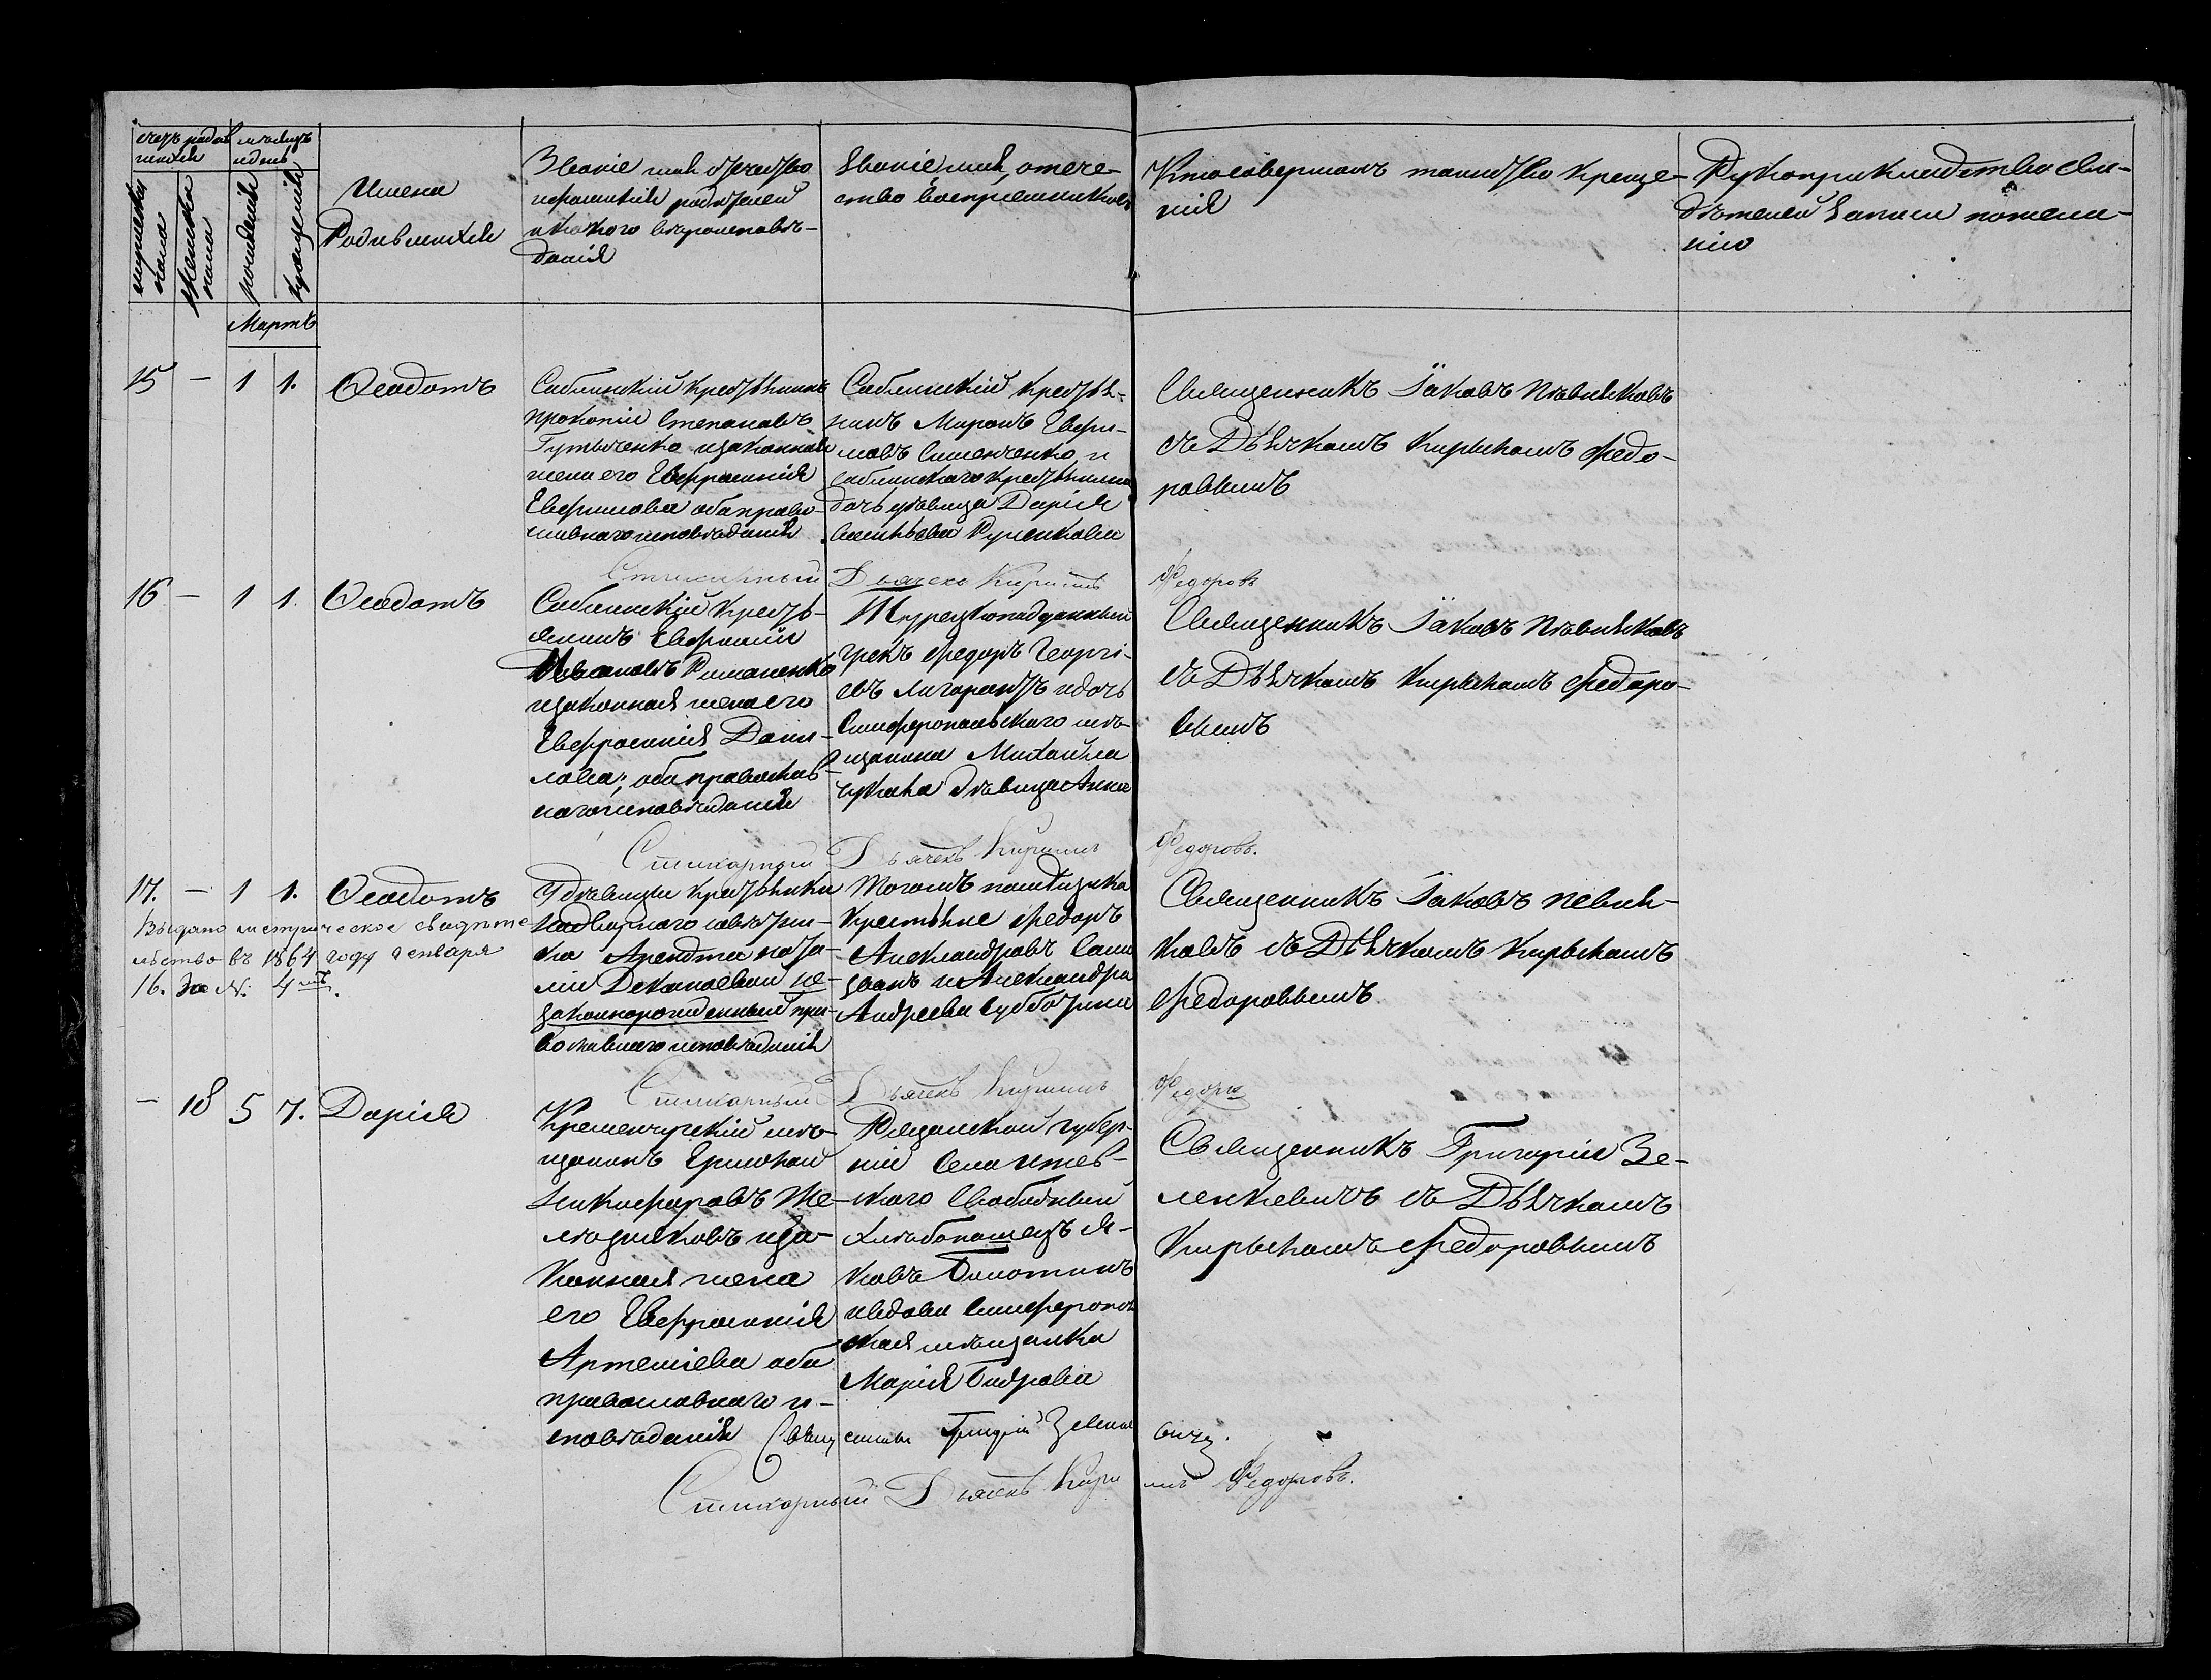 счетъ родив
шихся
мѣсяцъ
и день
мужеска
пола
женска
пола
рожденія
крещенія
Имена
Родившихся
Званіе имя отчество
и фамилія родителей
и какого вѣроисповѣ-
данія
Званіе имя, отече-
ство воспріемниковъ
Кто совершалъ таинство креще-
нія
Рукоприкладство сви-
дѣтелей записи по жела-
нію
Мартъ
15 – 1 1. Ѳеодотъ
Саблинскій крестьянинъ
Прокопій Степановъ
и законная
жена его Евфросинія
Евфимова оба право-
славнаго исповѣданія
Саблинскій крестья-
нинъ Миронъ Евфи-
мовъ Симченко и
Саблинского крестьянина
дочь дѣвица Дарія
Руденкова
Священникъ Іаковъ Пѣвняковъ
съ Дьячкомъ Кирыломъ Федо-
ровымъ
Стихарный Дьячекъ Кирилъ Федоровъ
16 – 1 1. Ѳеодотъ
Саблинскій кресть-
янинъ Евфимій
Ивановъ Романенко
и законная жена его
Евфросинія Дани-
лова; оба православ-
наго исповѣданія
Турецкоподданный
грекъ Федоръ Георгі-
евъ и дочь
Симферопольского мѣ-
щанина Михаила
дѣвица Анна
Священникъ Іаковъ Пѣвняковъ
съ Дьячкомъ Кирыломъ Федоро-
вымъ
Стихарный Дьячекъ Кирилъ Федоровъ.
17. – 1 1. Ѳеодотъ
Выдано метрическое свидѣте
льство въ 1864 году Генваря
16. За №. 4мъ.
У дѣвицы крестьянки
надворного совѣтни-
ка Арендта Ната-
ліи Декановой не-
законнорожденный пра-
вославнаго исповѣданія
Тогожъ помѣщика
крестьяне Федоръ
Александровъ
и Александра
Андреева Субботина
Священникъ Іаковъ Певня-
ковъ съ Дьячкомъ Кирыломъ
Федоровымъ
Стихарный Дьячекъ Кирилъ Федоровъ
– 18 5 7. Дарія
Кременчугскій мѣ-
щанинъ Ермолай
Никифоровъ Же-
лѣзняковъ и за-
конная жена
его Евфросинія
Артеміева оба
православнаго и-
сповѣданія
Рязанской губер-
ніи Села
Свободный
хлѣбопашецъ Я-
ковъ Болотинъ
и вдова Симферополь
ская мѣщанка
Марія
Священникъ Григорій Зе-
ленкевичъ съ Дьячкомъ
Кирыломъ Федоровымъ
Священникъ Григорій Зеленкевичъ.
Стихарный Дьячекъ Кирилъ Федоровъ.